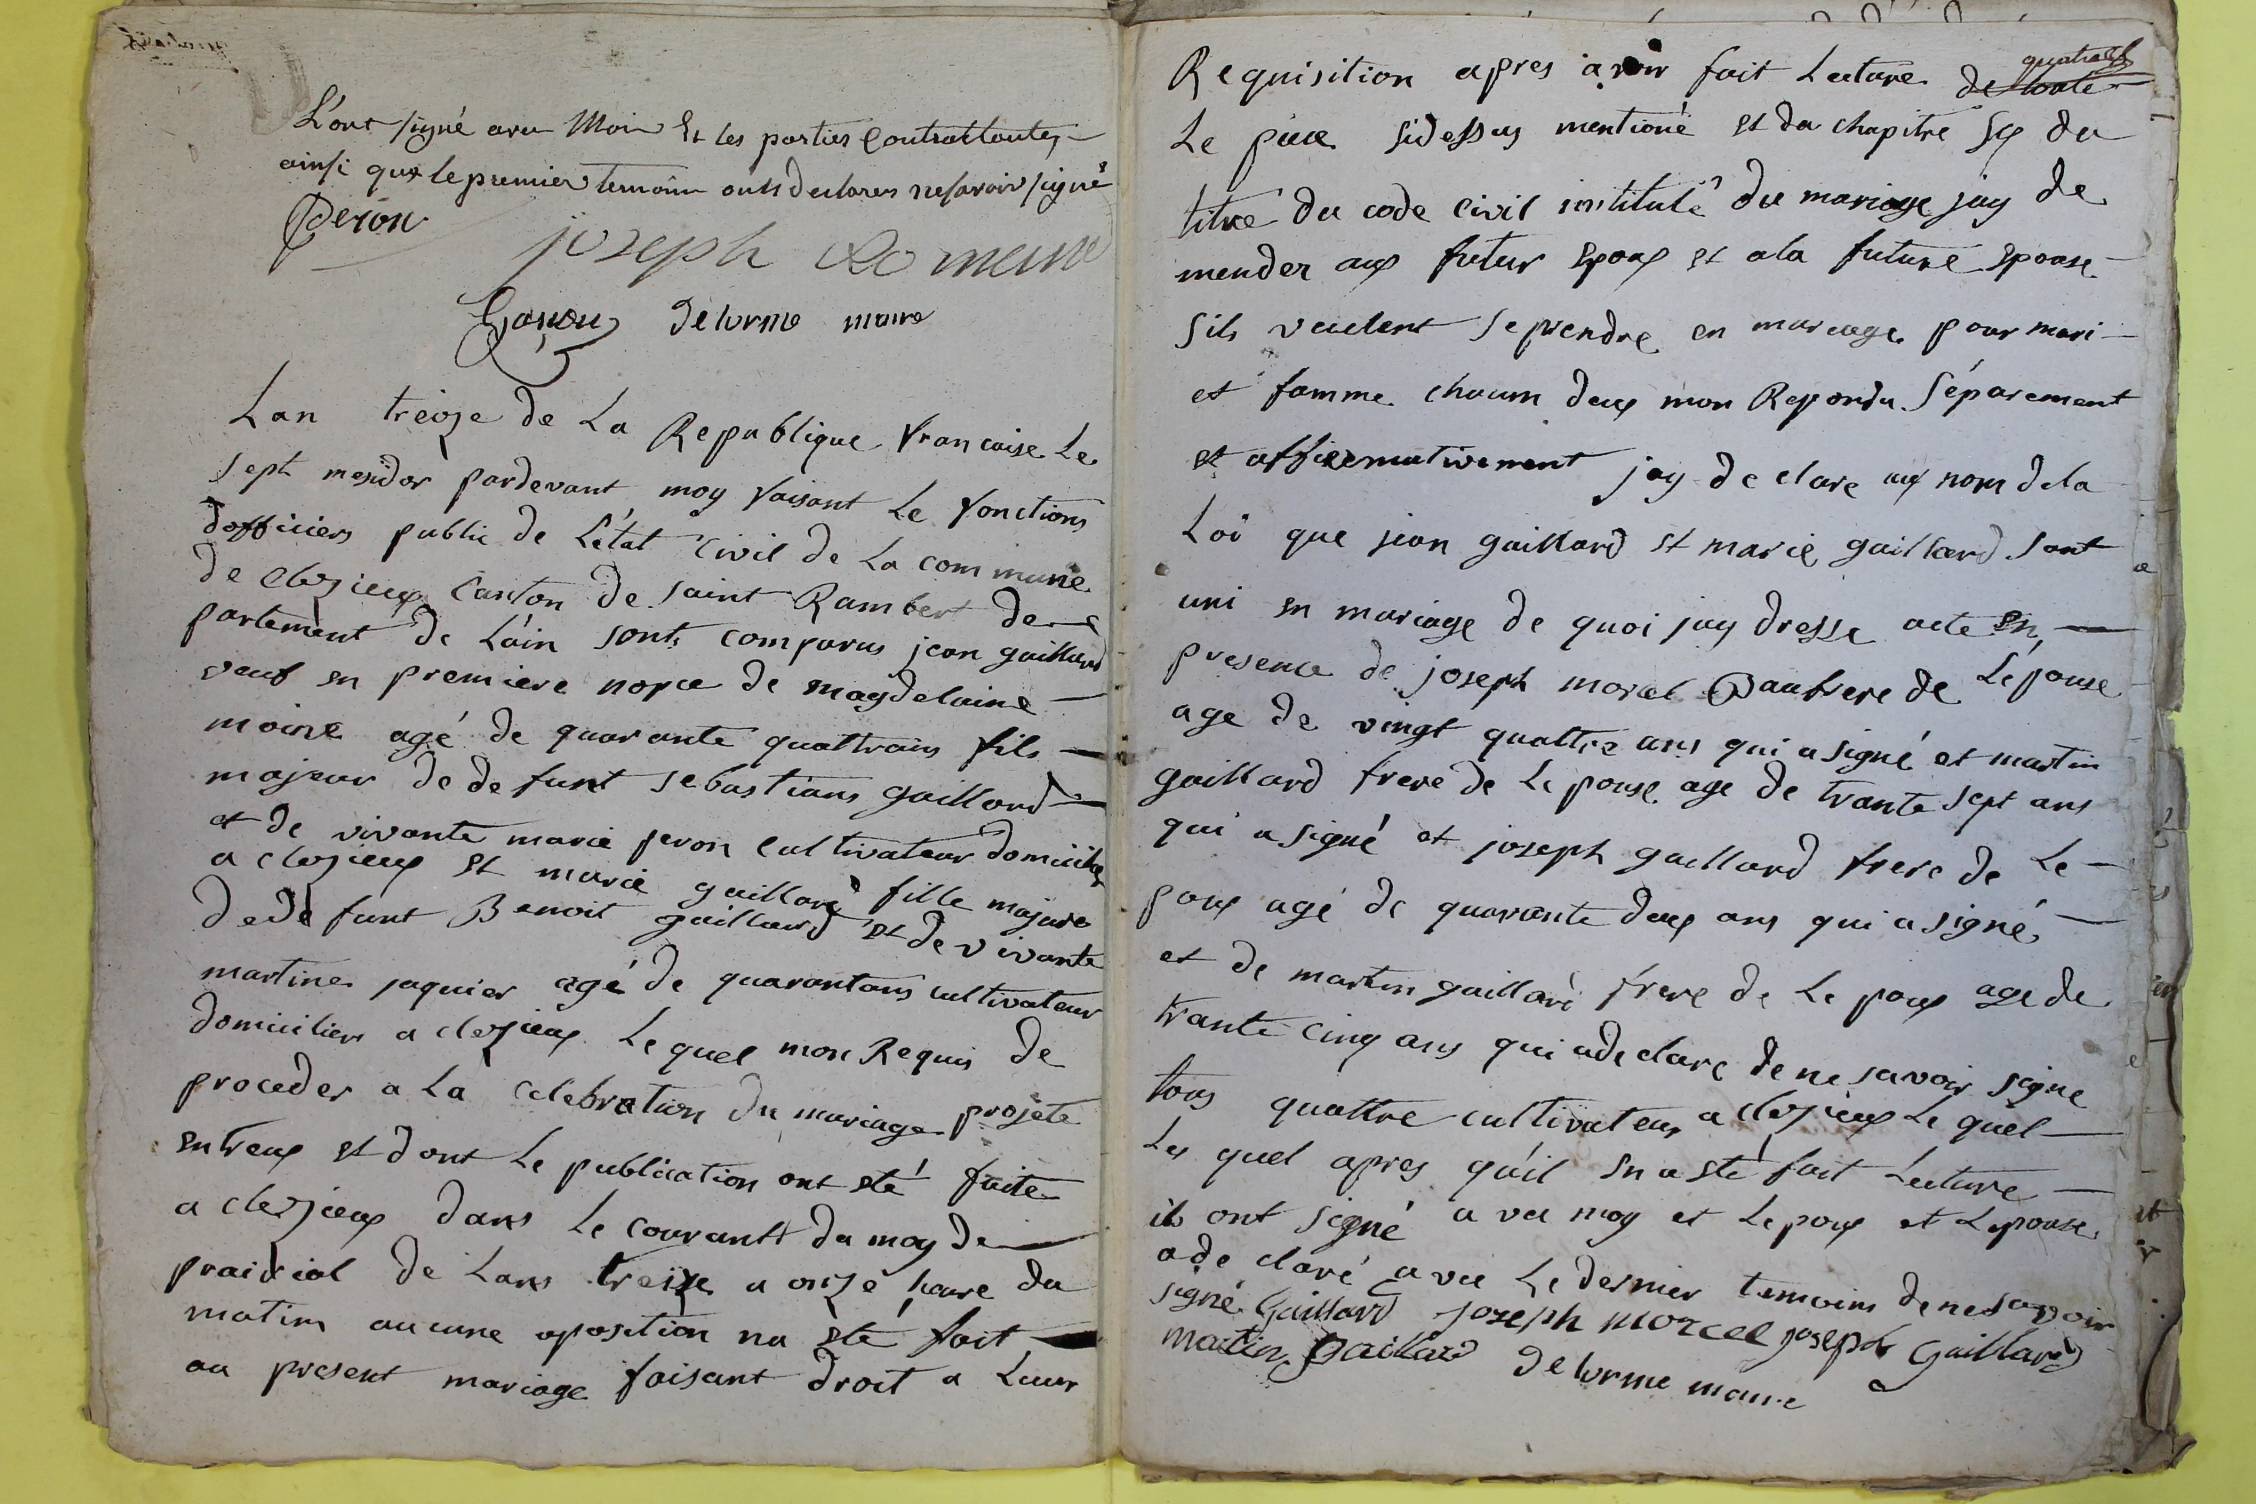 L'ont signé avec Moi Et les parties Contrattantes
ainsi que le premier temoin onts declares ne savoir signé
Peron
joseph Romain
Ganeu delorme maire
Lan treize de La Republique francaise Le
sept mesidor pardevant moy faisant Le fonctions
dofficiers public de Létat Civil de La commune
de Clezieux Canton de saint Rambert de
partement de Lain sonts comparus jean gaillard
veuf en premiere nopce de magdelaine
moine agé de quarante quattrans fils
majeur de de funt sebastians gaillard
et de vivante marie peron Cultivateur domicilie
a clezieux et marie gaillard fille majure
de de funt Benoit gaillard et de vivante
martine jaquier agé de quarantans cultivateur
domiciliers a clezieux Le quel mon Requis de
proceder a La Celebration du mariage projete
entreux et dont Le publication ont eté faite
a clezieux dans Le courantt du moy de
prairial de Lans treize a onze heure du
matin aucune oposition na été fait
au present mariage faisant droit a Leur
quatrail
Requisition apres avoir fait Lecture de toute
Le piece sidessus mentioné et du chapitre six du
titre du code Civil institulé du mariage jay de
mender aux futur Epoux et a la future Epouse
sils veulent se prendre en mariage pour mari
et famme chacun deux mon Repondu séparement
et affirmativement jay de clare aux nom de la
Loi que jean gaillard et marie gaillard sont
uni en mariage de quoi jay dresse acte En
presence de joseph morel Baufrere de Lépouse
age de vingt quattre ans qui a signé et martin
gaillard frere de Le pouse age de trante sept ans
qui a signé et joseph gaillard frere de Le
poux agé de quarante deux ans qui a signé
et de martin gaillard frere de Le poux age de
trante Cinq ans qui a de clare de ne savoir signe
tous quattre cultivateur a clezieux Le quel
Les quel apres qu'il En a eté fait Lecture
ils ont signé a vec moy et Le poux et Lepouse
a de claré avec Le dernier temoins de ne savoir
signé Gaillard joseph morel joseph Gaillard
martin Gaillard delorme maire